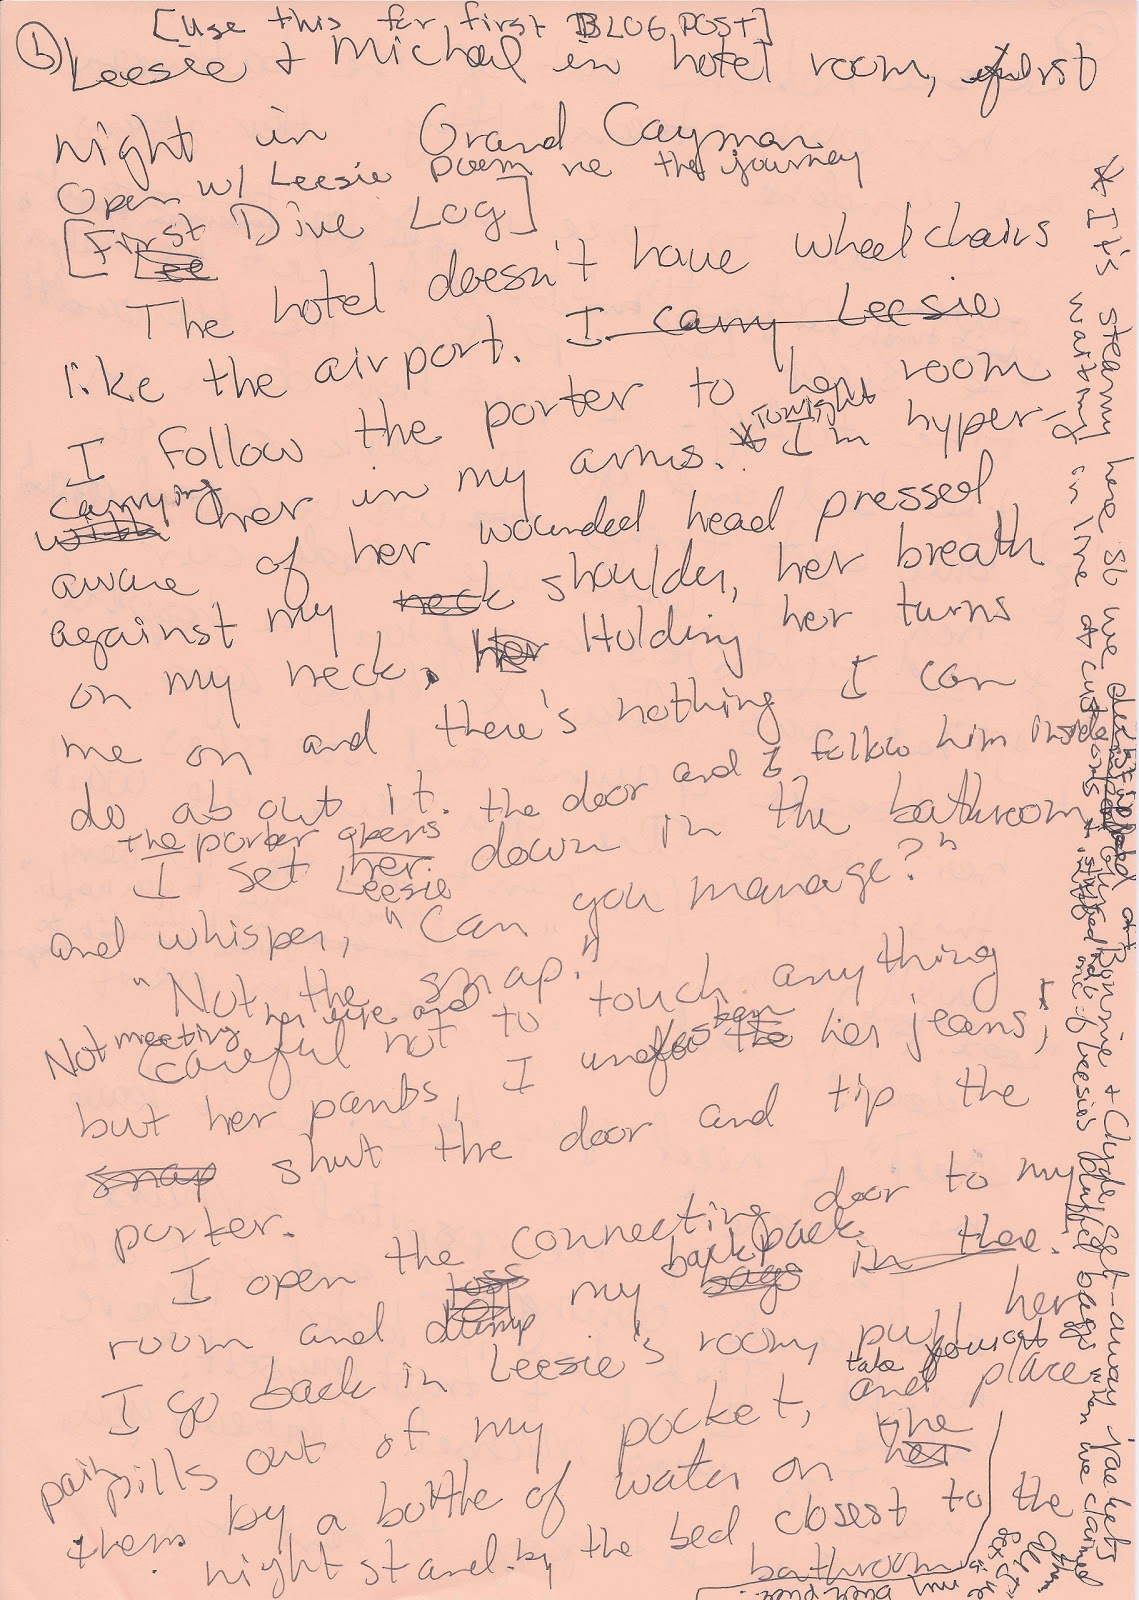 [Use this for first BLOG POST]
b) Leesie + Michael in hotel room, first
night in Grand Cayman
Open w/ Leesie poem re the journey
[First Dive Log]
Lee
The hotel doesn't have wheelchairs
like the airport. I carry Leesie
I follow the porter to her room
carrying
with her in my arms. * Tonight I'm hyper-
aware of her wounded head pressed
against my neck shoulder, her breath
on my neck. Her Holding her turns
me on and there's nothing I can
do about it.
the porter opens the door and I follow him inside
I set her down in the bathroom
Leesie
and whisper, "Can you manage?"
"Not the snap."
Not meeting her eye and
careful not to touch anything
but her pants, I unfasten the her jeans,
snap shut the door and tip the
porter.
I open the connecting door to my
room and toss dump my bags backpack in there.
I go back in Leesie's room, pull her
pain pills out of my pocket, take and place
them by a bottle of water on her the
night stand by the bed closest to the
bathroom
* It's steamy here so we
waiting in line at customs
Bonnie + Clyde get-away jackets
one of Leesie's bags when we claimed
my back pack